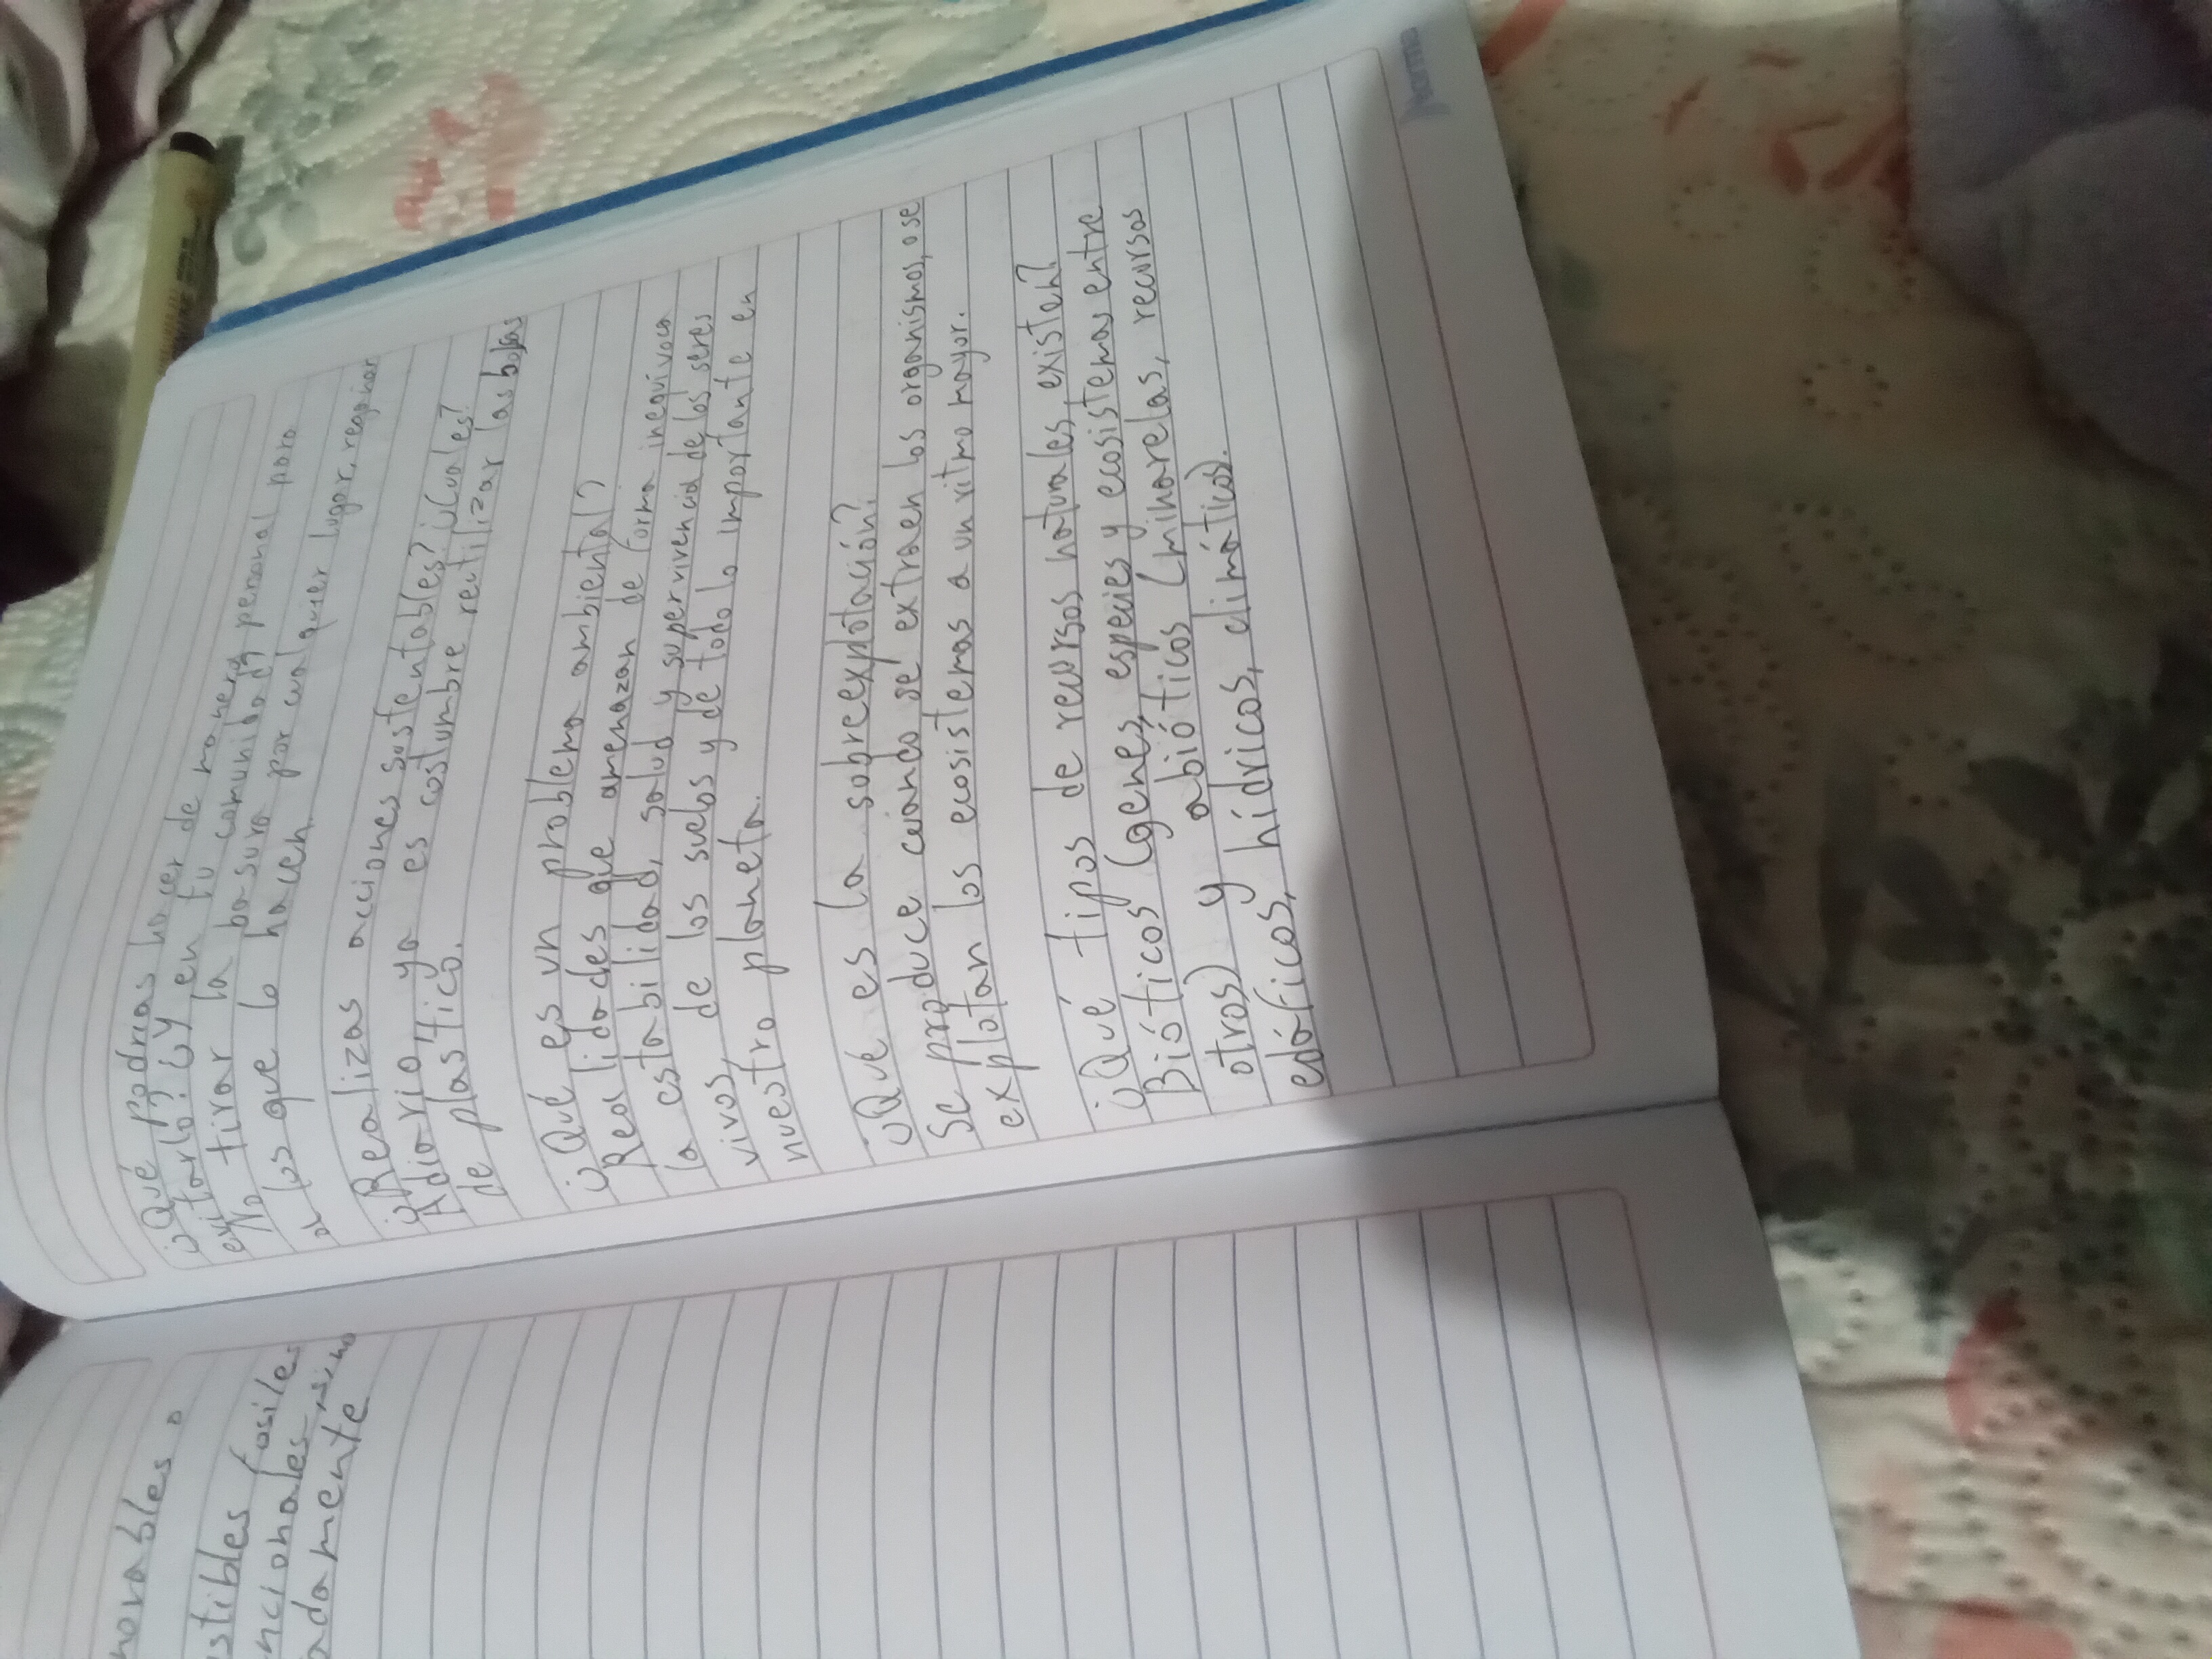 novables o
stibles fósiles
ncionales, sino
adamente
¿Qué podrías hacer de manera personal para
evitarlo? ¿Y en tu comunidad?
No tirar la basura por cualquier lugar, regañar
a los que lo hacen.
¿Realizas acciones sustentables? ¿Cuales?
Adiario, ya es costumbre reutilizar las bolsas
de plastico.
¿Qué es un problema ambiental?
Realidades que amenazan de forma inequívoca
la estabilidad, salud y supervivencia de los seres
vivos, de los suelos y de todo lo importante en
nuestro planeta.
¿Qué es la sobreexplotación?
Se produce cuando se extraen los organismos, o se
explotan los ecosistemas a un ritmo mayor.
¿Qué tipos de recursos naturales, existen?
Bióticos (genes, especies y ecosistemas entre
otros) y abióticos (minarelas, recursos
edáficos, hídricos, climáticos).
norma